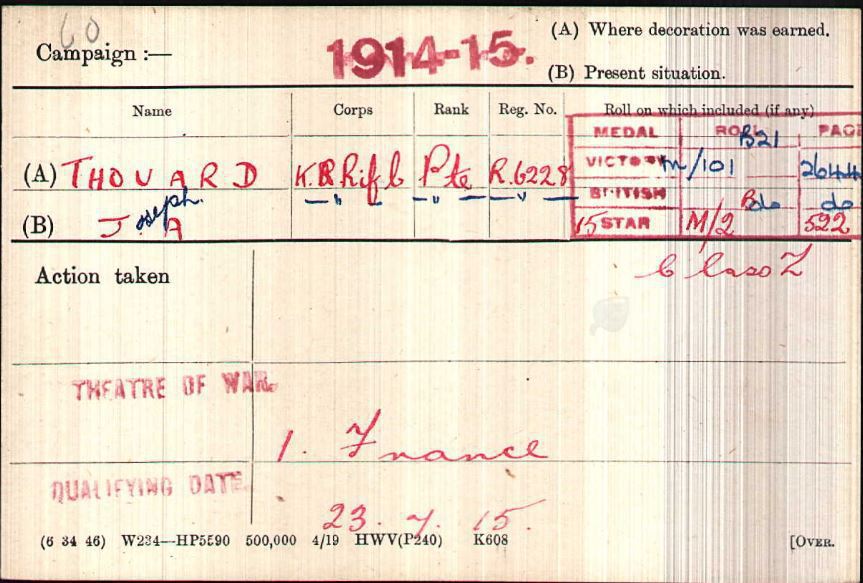 60
Campaign :— 1914-15. (A) Where decoration was earned.
(B) Present situation.
Name Corps Rank Reg. No. Roll on which included (if any)
MEDAL ROLL B21 PAGE
(A) THOUARD K.R.Rif C Pte R.6228 VICTORY M/101 2644
—"— —"— —"— BRITISH do do
(B) Joseph. A 15 STAR M/2 522
Action taken Class Z
THEATRE OF WAR.
1. France
QUALIFYING DATE.
23. 7. 15.
(6 34 46) W234—HP5590 500,000 4/19 HWV(P240) K608 [OVER.